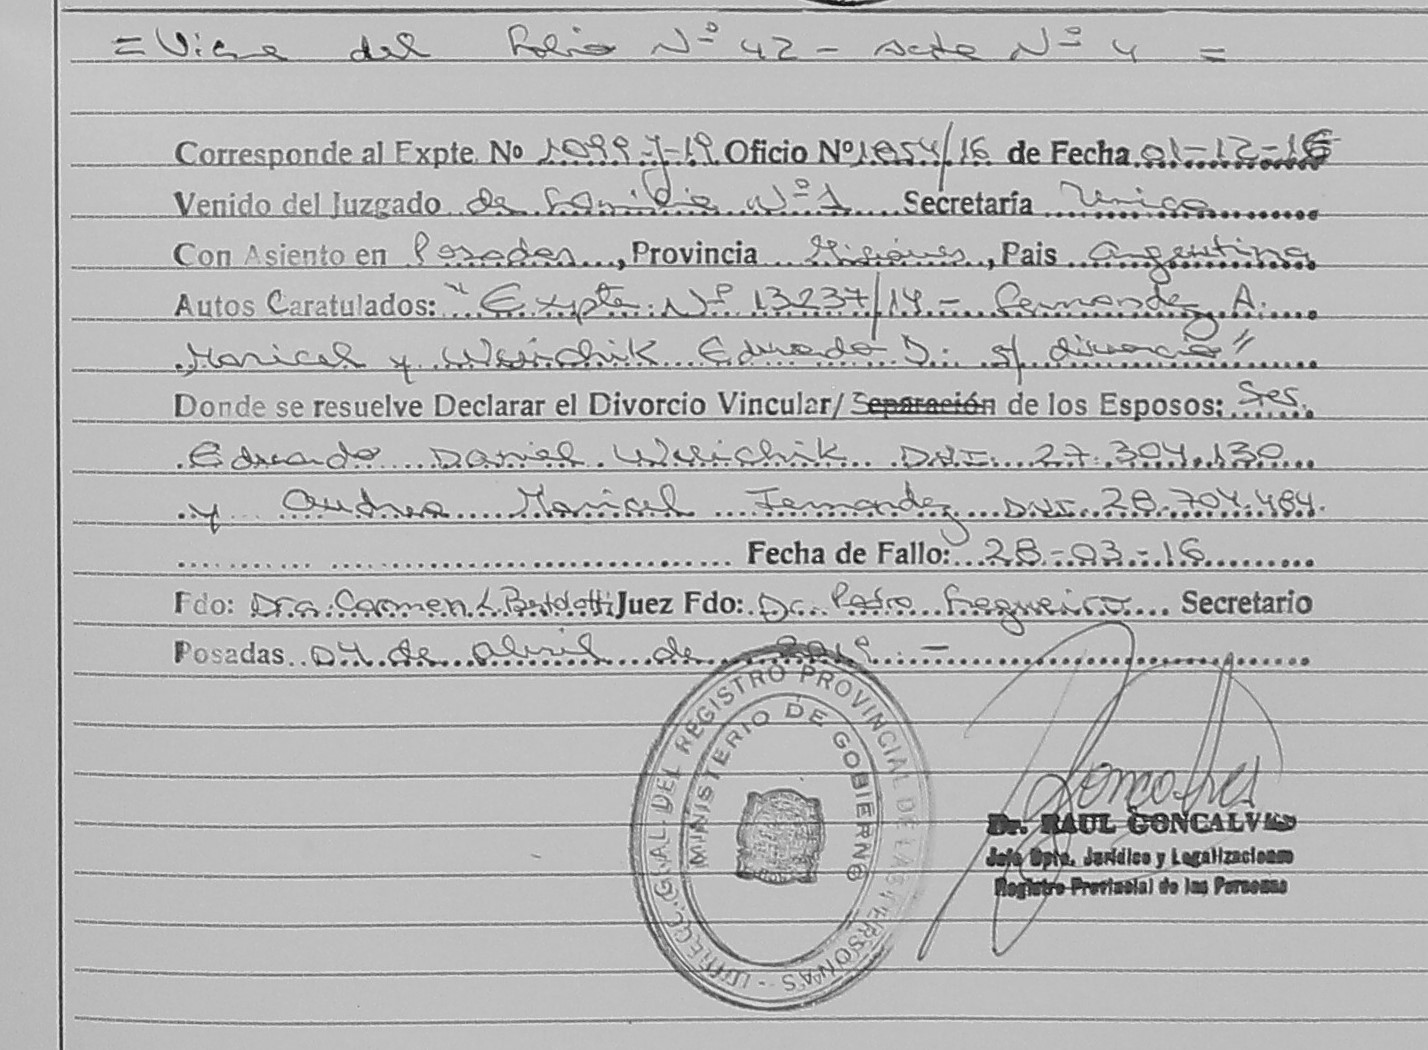 = Viene del folio Nº 42 - acta Nº 4 =
Corresponde al Expte. Nº 1099-J-19 Oficio Nº 1854/16 de Fecha 01-12-16
Venido del Juzgado de Familia Nº 1 Secretaría Unica
Con Asiento en Posadas, Provincia Misiones, Pais Argentina
Autos Caratulados: "Expte. Nº 13237/14 - Fernandez A.
Maricel y Weirichik Eduardo D. s/ divorcio"
Donde se resuelve Declarar el Divorcio Vincular/ Separación de los Esposos: Sres.
Eduardo Daniel DNI. 27.304.130
y Andrea Maricel Fernandez DNI 28.704.484.
Fecha de Fallo: 28-03-16
Fdo: Dra. Carmen Juez Fdo: Dr. Pedro Secretario
Posadas 04 de abril de 2019.-
DIRECC. GRAL. DEL REGISTRO PROVINCIAL DE LAS PERSONAS -
MINISTERIO DE GOBIERNO
Goncalves
Dr. RAUL GONCALVES
Jefe Dpto. Jurídico y Legalizaciones
Registro Provincial de las Personas